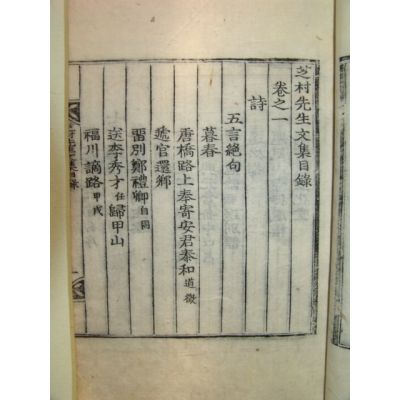 芝村先生文集目錄
卷之一
詩
五言絶句
暮春
唐橋路上奉寄安君泰和道微
遞官還鄕
留別鄭禮卿
送李秀才任歸甲山
福川謫路甲戌